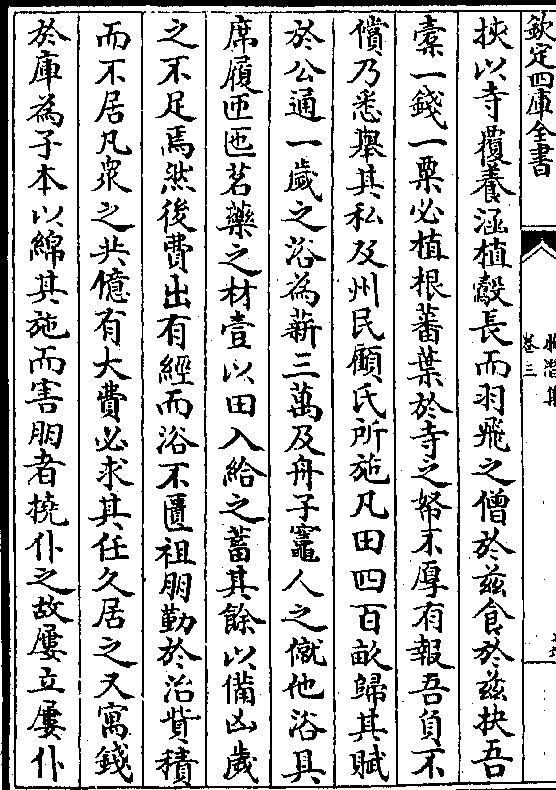 欽定四庫全書
卷三
挾以寺覆養涵植鷇長而羽飛之僧於兹食於兹抉吾
橐一錢一粟必植根蕃葉於寺之帑不厚有報吾負不
償乃悉舉其私及州民顧氏所施凡田四百畝歸其賦
於公通一歲之浴為薪三萬及舟子竈人之僦他浴具
席履匜茗藥之材壹以田入給之蓄其餘以備凶歲
之不足焉然後費出有經而浴不匱祖朋勤於治貲積
而不居凡衆之共億有大費必求其任久居之又寓錢
於庫為子本以綿其施而害朋者撓仆之故屢立屢仆